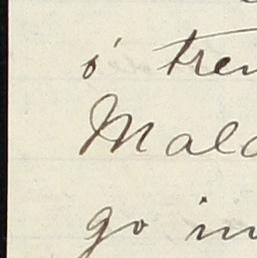 ó tren
Malo
go in